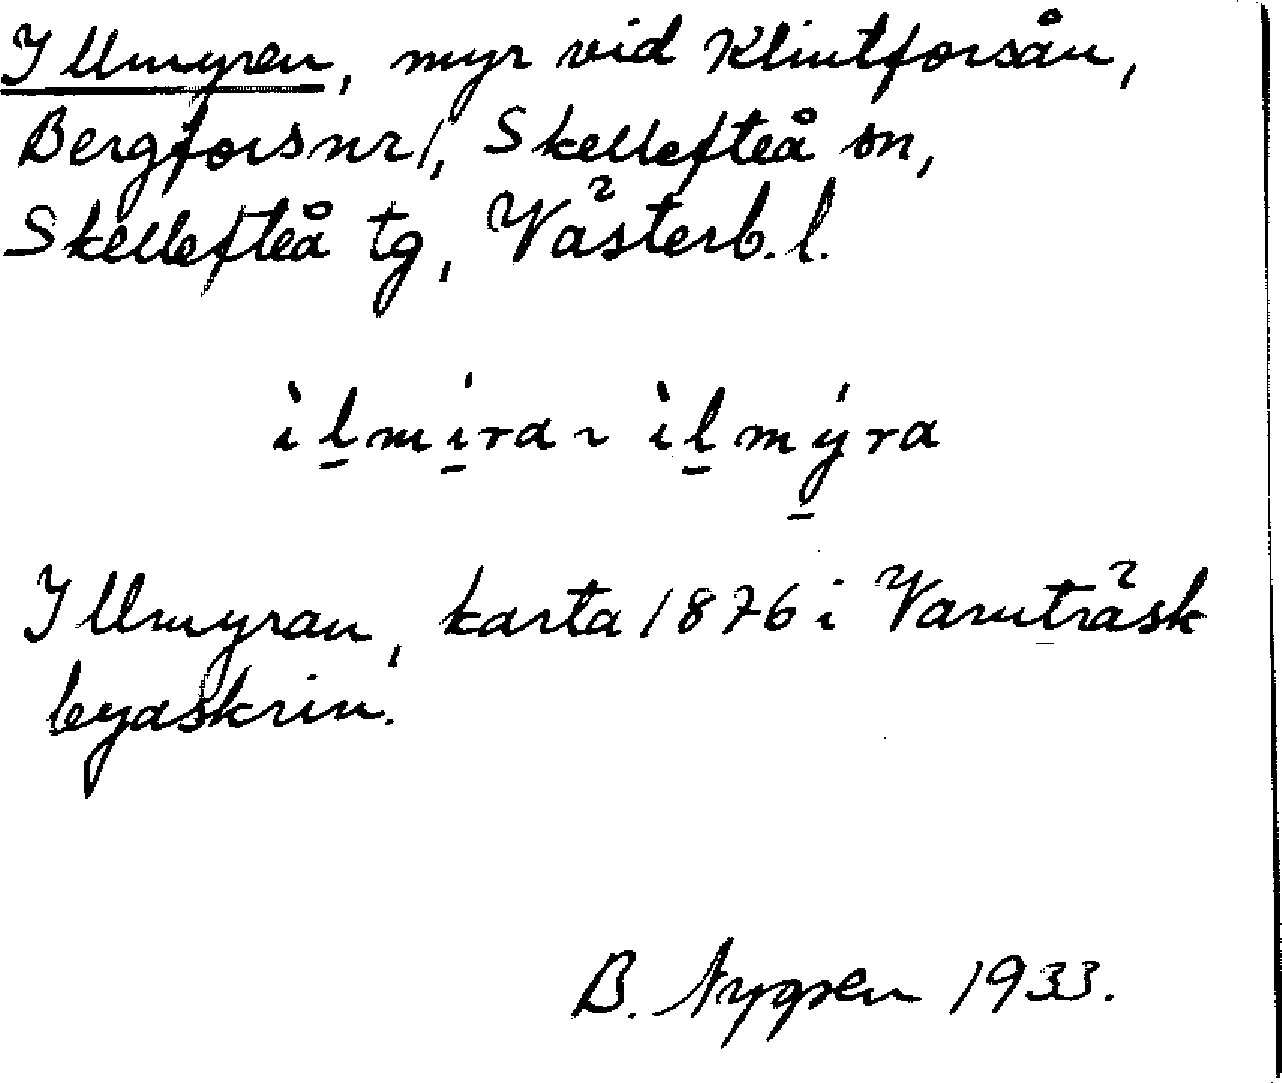 Illmyren, myr vid Klintforsån,
Bergfors nr 1, Skellefteå sn,
Skellefteå tg, Västerb. l.
ìl̲mí̲ra ~ ìl̲mý̲ra
Illmyran, karta 1876 i Varuträsk
byaskrin.
B. Nygren 1933.